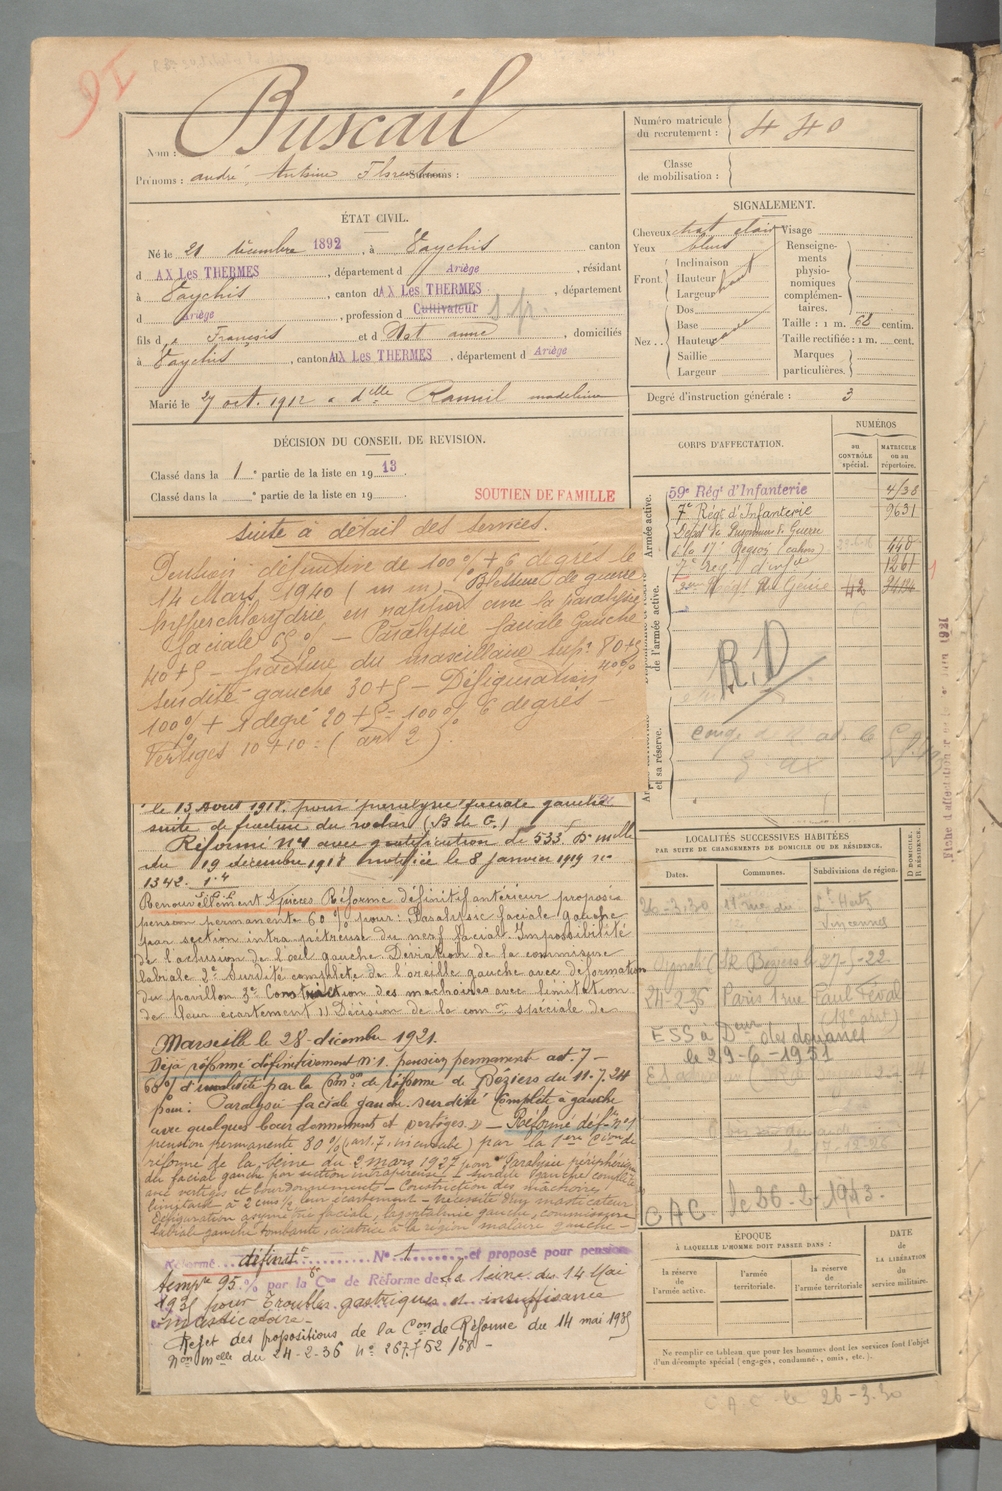 Buscail
Nom :
Prénoms : andré, Antoine Florentin Surnoms :
Numéro matricule
du recrutement :
440
Classe
de mobilisation :
ÉTAT CIVIL.
Né le 21 décembre 1892, à Vaychis canton
d AX Les THERMES, département d Ariège, résidant
à Vaychis, canton d AX Les THERMES, département
d Ariège, profession d Cultivateur S.P.
fils de François et d Not anne, domiciliés
à Vaychis, canton AX Les THERMES, département d Ariège
Marié le 27 oct. 1912 à dlle madeleine
SIGNALEMENT.
Cheveux chat clair Visage
Yeux bleus
Front. Inclinaison
Hauteur
Largeur haut
Nez.. Dos
Base
Hauteur
Saillie
Largeur
Renseigne-
ments
physio-
nomiques
complémen-
taires.
Taille : 1 m. 68 centim.
Taille rectifiée : 1 m. cent.
Marques
particulières.
Degré d'instruction générale : 3
DÉCISION DU CONSEIL DE REVISION.
Classé dans la 1e partie de la liste en 1913.
Classé dans la e partie de la liste en 19
SOUTIEN DE FAMILLE
CORPS D'AFFECTATION.
NUMÉROS
au
CONTRÔLE
spécial.
MATRICULE
ou au
répertoire.
Armée active.
59e Régt d'Infanterie
7e Régt d'Infanterie 9631
Dépôt de Prisonniers de Guerre
de la 17e Région (cahors) 440
7e Regt d'infie 1261
Génie 42
de l'armée active.
et sa réserve.
R.D
suite à détail des services.
Pension définitive de 100% + 6 degrés le
14 Mars 1940 (m m) Blessure de guerre
hyperchlorydrie en rapport avec la paralysie
faciale 65% — Paralysie faciale gauche
40+5 — fracture du maxillaire supr 80+5
surdité gauche 30+5 — Défiguration 40%
100% + 1 degré 20+5 = 100% 6 degrés —
Vertiges 10+10 : (art 2).
le 13 Aout 1918. pour paralysie faciale gauche
suite de fracture du rocher (B de G.)
Réformé N°1 avec gratification de 533f Don mlle
du 19 décembre 1918 notifiée le 8 janvier 1919 no
1342.
Renouvellement Réforme définitif antérieur proposé
pension permanente 60% pour : Paralysie faciale gauche
par section intra pétreuse du nerf facial. Impossibilité
de l'oclusion de l'œil gauche Déviation de la commissure
labiale 2° Surdité complète de l'oreille gauche avec déformation
du pavillon 3° Constriction des machoires avec limitation
de leur ecartement Décision de la comon spéciale de
Marseille le 28 décembre 1921.
Déjà réformé définitivement n°1. pension permanent art. 7 —
60% d'invalidité par la Comon de réforme de Béziers du 11.7.24
pour : Paralysie faciale gauche surdité complète à gauche
avec quelques bourdonnements et vertiges » — Réformé défif n°1
pension permanente 80% (art. 7. incurable) par la 1ère Con de
réforme de la Seine du 2 mars 1927 pour Paralysie périphérique
du facial gauche par section intrapétreuse — surdité gauche complète
avec vertiges et bourdonnements — Constriction des machoires
limitant à 2 cms ½ leur écartement — nécessité d'un masticateur
défiguration asymétrie faciale, lagophtalmie gauche, commissure
labiale gauche tombante, cicatrice à la région malaire gauche —
Réformé définitf N° 1 et proposé pour pension
tempre 95% par la Con de Réforme de la Seine du 14 Mai
1935 pour troubles gastriques et insuffisance
masticatoire —
Rejet des propositions de la Con de Réforme du 14 mai 1935
Don mlle du 24-2-36 N° 267.752
LOCALITÉS SUCCESSIVES HABITÉES
PAR SUITE DE CHANGEMENTS DE DOMICILE OU DE RÉSIDENCE.
Dates. Communes. Subdivisions de région. D DOMICILE. R RÉSIDENCE.
26-3.30
Vincennes
24-2-36 Paris 1 rue Paul Féval
(18e arrt)
ESS à Deur des douanes
le 29-6-1951
CAC. le 26-2-1943.
ÉPOQUE
À LAQUELLE L'HOMME DOIT PASSER DANS :
la réserve de
l'armée active.
l'armée
territoriale
la réserve
de
l'armée territoriale
DATE
de
LA LIBÉRATION
du
service militaire.
Ne remplir ce tableau que pour les hommes dont les services font l'objet
d'un décompte spécial (engagés, condamnés, omis, etc.).
C.A.C le 26-3.30